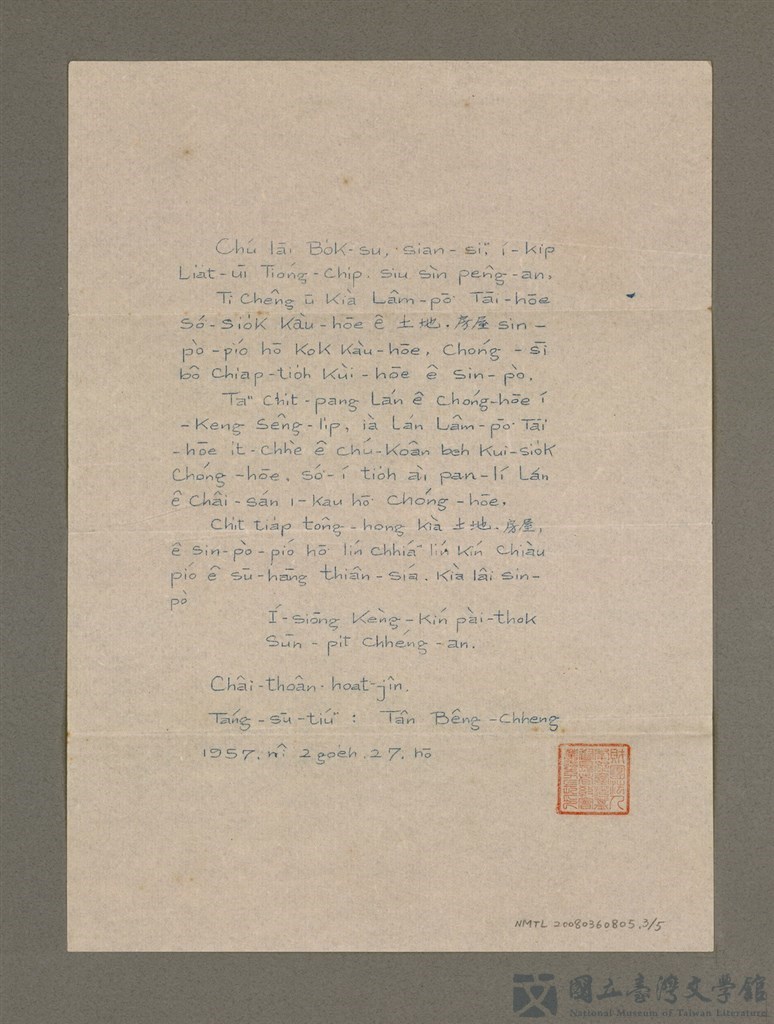 Chú lāi Bo̍k-su, sian-siⁿ í-ki̍p
Lia̍t-ūi Tiong-chip. siu sìn pêng-an,
Tī Chêng ū Kià Lâm-pō͘ Tāi-hōe
Só͘-Sio̍k Kàu-hōe ê 土地．房屋 sin-
pò-pió hō͘ Kok Kàu-hōe, Chóng-sī
bô Chiap-tio̍h Kùi-hōe ê Sin-pò.
Taⁿ Chit-pang Lán ê Chóng-hōe í
-Keng Sêng-li̍p, ià Lán Lâm-pō͘ Tāi
-hōe it-Chhè ê Chú-Koân beh Kui-sio̍k
Chóng-hōe, Só͘-í tio̍h ài pan-lí Lán
ê Châi-sán î-kau hō͘ Chóng-hōe,
Chit tia̍p tông-hong kià 土地．房屋,
ê sin-pò-pió hō͘ lín Chhiáⁿ lín Kín Chiàu
pió ê sū-hāng thiân-siá. Kià lâi sin-
pò
Í-siōng Kèng-Kín pài-thok
Sūn-pit Chhéng-an.
Châi-thoân hoat-jîn.
Táng-sū-tiúⁿ : Tân Bêng-Chheng
1957. nî 2 goe̍h 27. hō
NMTL 20080360805.3/5
國立臺灣文學館
National Museum of Taiwan Literature